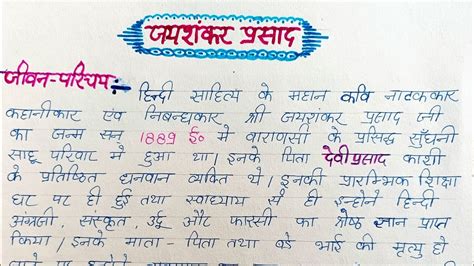 जयशंकर प्रसाद
जीवन-परिचय:- हिन्दी साहित्य के महान कवि नाटककार
कहानीकार एवं निबन्धकार श्री जयशंकर प्रसाद जी
का जन्म सन् 1889 ई० में वाराणसी के प्रसिद्ध सुँघनी
साहू परिवार में हुआ था। इनके पिता देवीप्रसाद काशी
के प्रतिष्ठित धनवान व्यक्ति थे। इनकी प्रारम्भिक शिक्षा
घर पर ही हुई तथा स्वाध्याय से ही इन्होंने हिन्दी
अंग्रजी, संस्कृत, उर्दू और फारसी का श्रेष्ठ ज्ञान प्राप्त
किया। इनके माता-पिता तथा बडे भाई की मृत्यु हो
जाने पर इन्होने